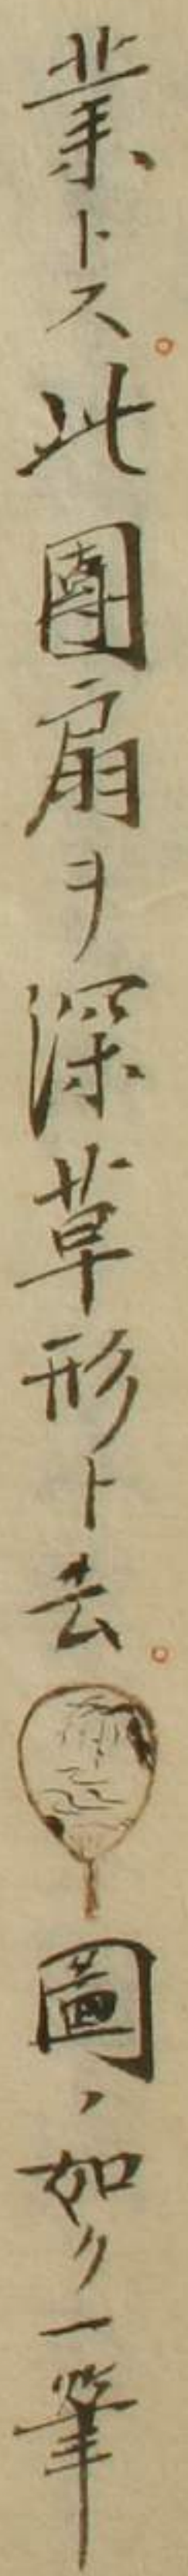 業トス。此團扇ヲ深草形ト云。圖ノ如ク一筆